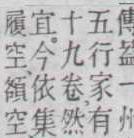 傳益一州
五行家有
十九卷然
宜今依集
履空額空